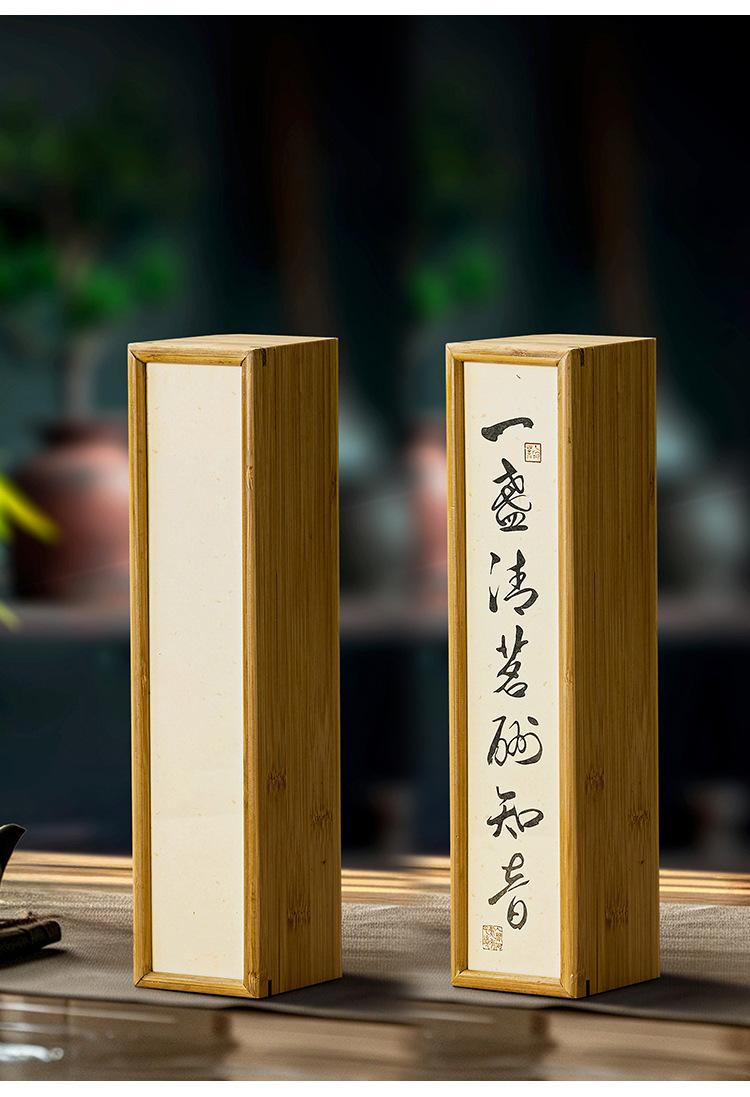 一盏清茗酬知音